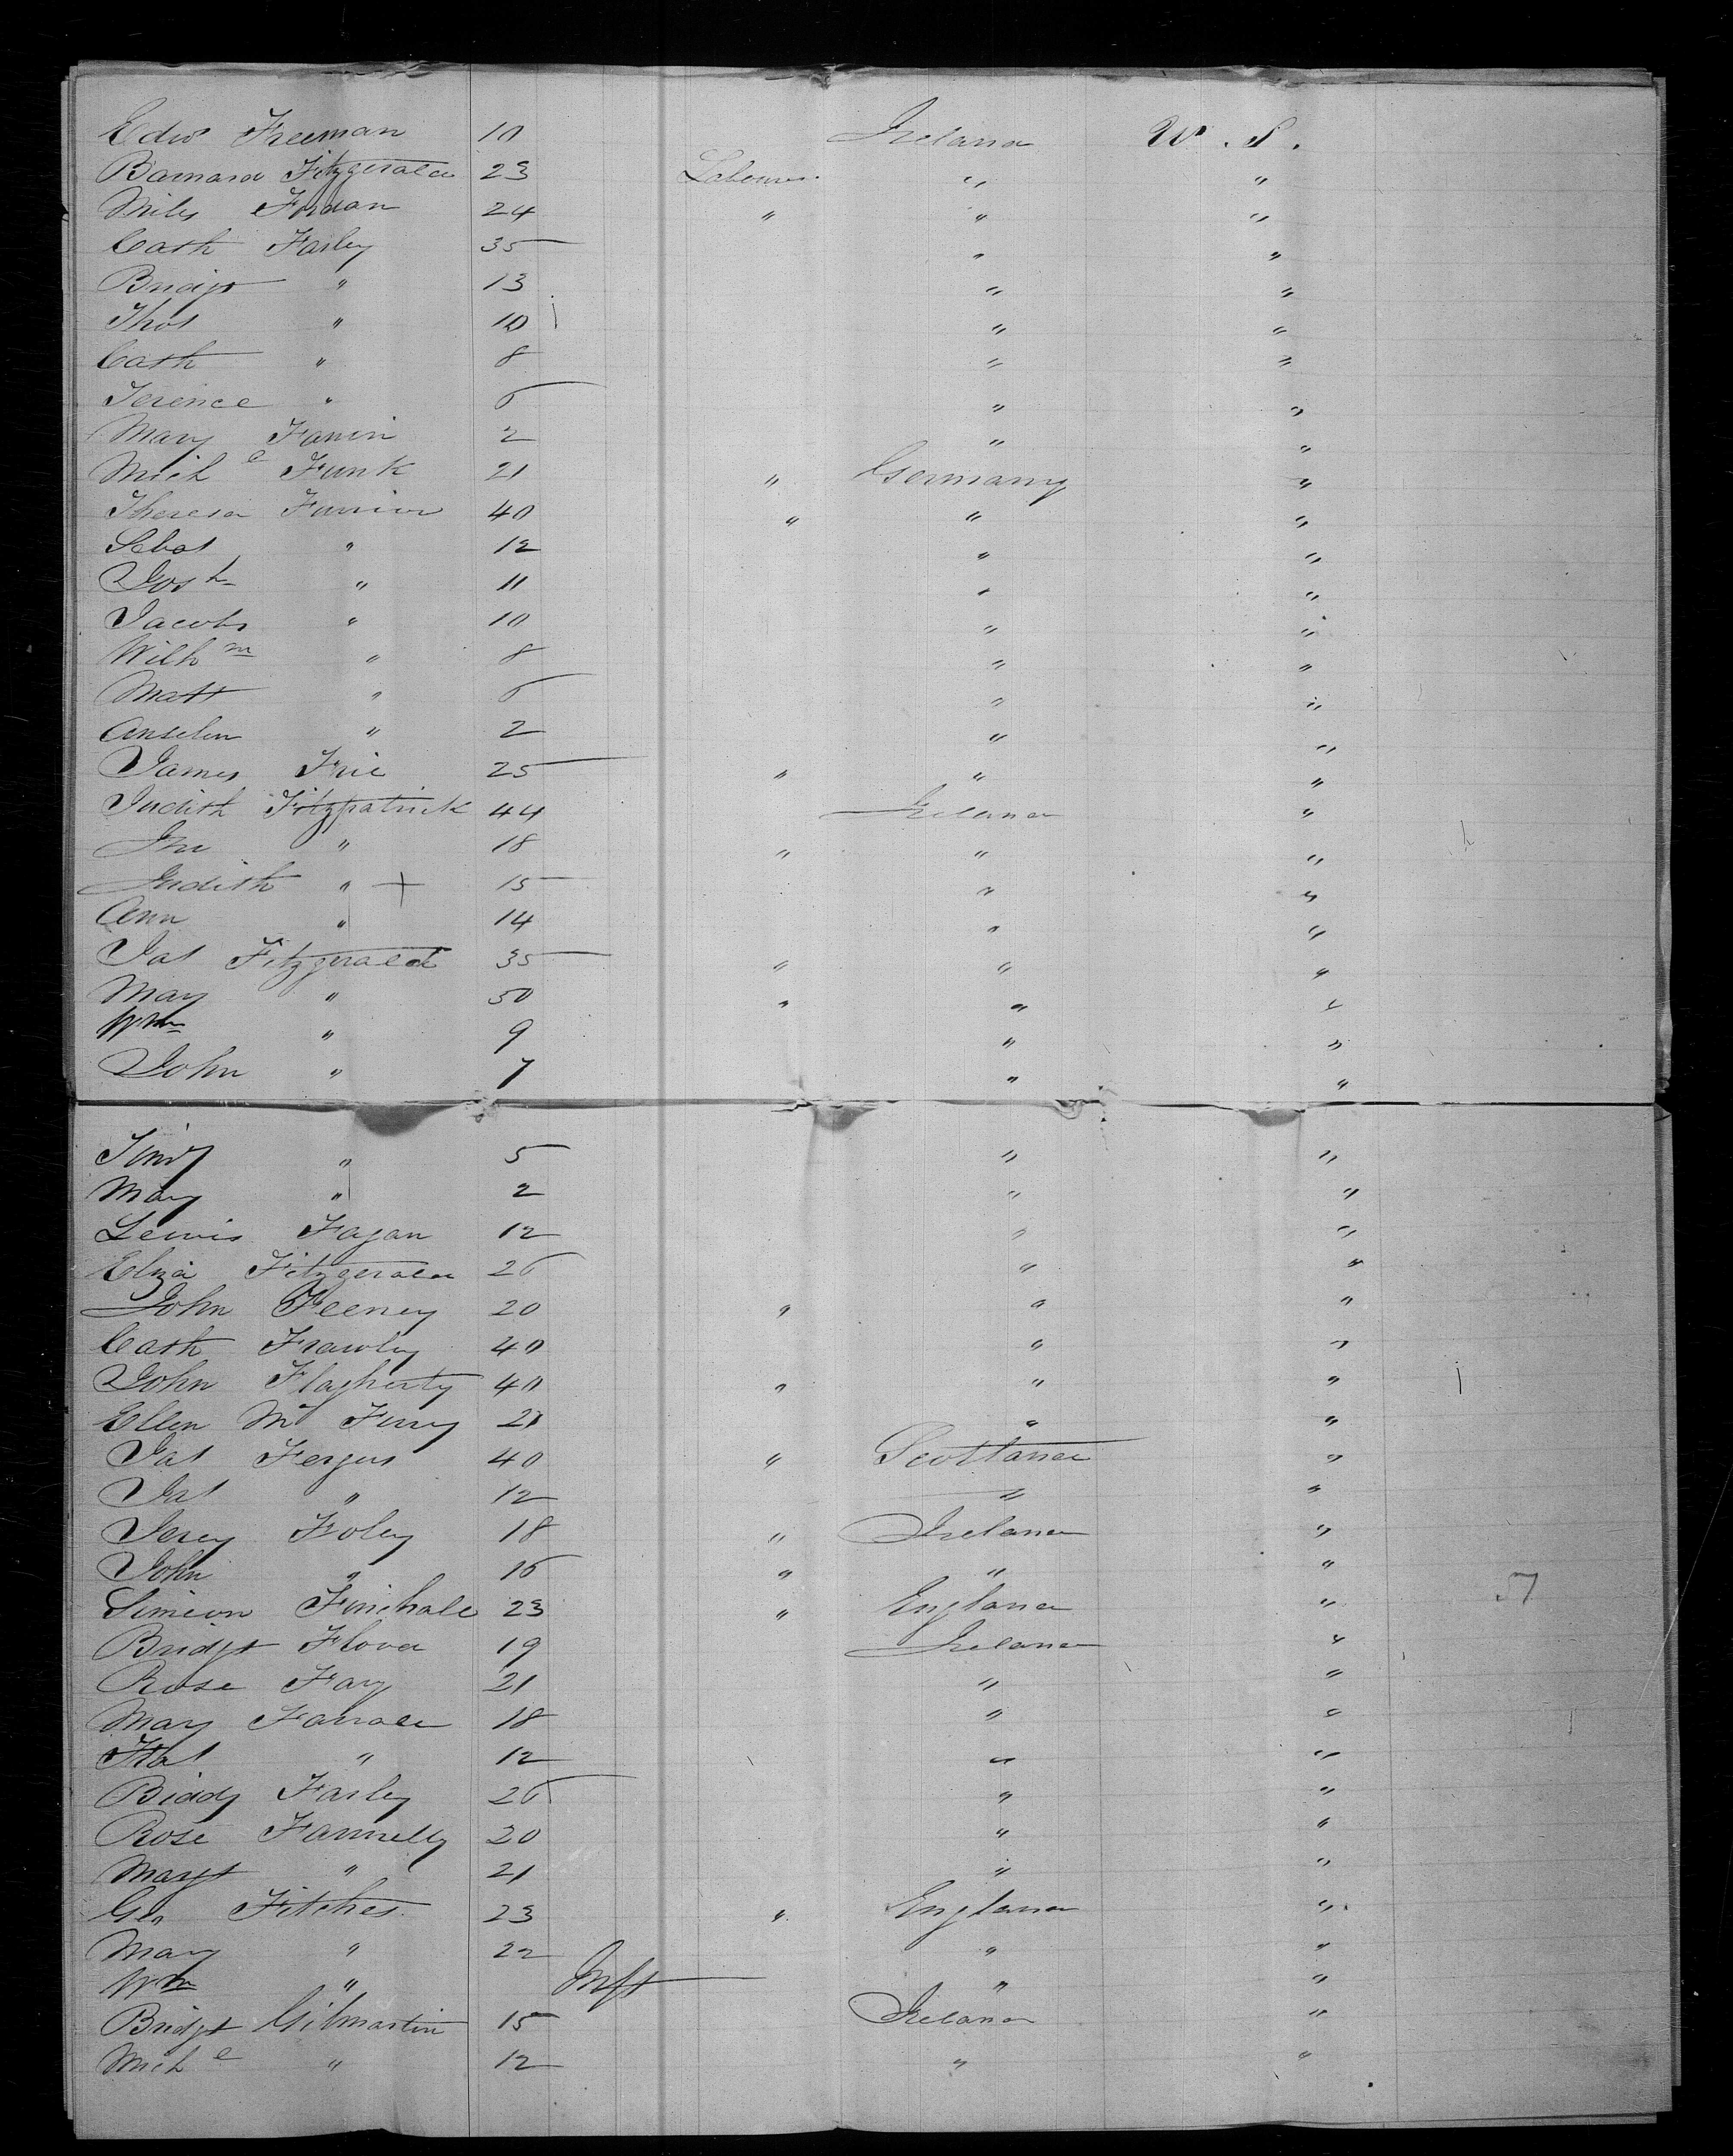 Edwd Freeman 10 Ireland U. S.
Barnard Fitzgerald 23 Labourer " "
Miles Fordan 24 " " "
Cath Farley 35 " "
Bridgt " 13 " "
Thos " 10 " "
Cath " 8 " "
Terence " 6 " "
Mary Fannin 2 " "
Michl Funk 21 " Germany "
Theresa 40 " " "
Sebat " 12 " "
Josh " 11 " "
Jacob " 10 " "
Wilhm " 8 " "
Matt " 6 " "
Anselm " 2 " "
James Frie 25 " " "
Judith Fitzpatrick 44 Ireland "
Jno " 18 " " "
Judith " + 15 " "
Ann " 14 " "
Pat Fitzgerald 35 " " "
Mary " 30 " " "
Wm " 9 " "
John " 7 " "
" 5 " "
Mary " 2 " "
Lewis Fagan 12 " "
Eliza Fitzgerald 26 " "
John Feeney 20 " " "
Cath Frawley 40 " "
John Flagherty 40 " " "
Ellen Mc 21 " "
Pat Fergus 40 " Scotland "
Pat " 12 " "
Jerey Foley 18 " Ireland "
John " 16 " " "
Simeon Finchale 23 " England "
Bridgt Flood 19 Ireland "
Rose Fay 21 " "
Mary Farrald 18 " "
" 12 " "
Biddy Farley 26 " "
Rose Fannelly 20 " "
Margt " 21 " "
Geo Fitches 23 " England "
Mary " 22 " "
Wm " Inft " "
Bridgt Gilmartin 15 Ireland "
Michl " 12 " "